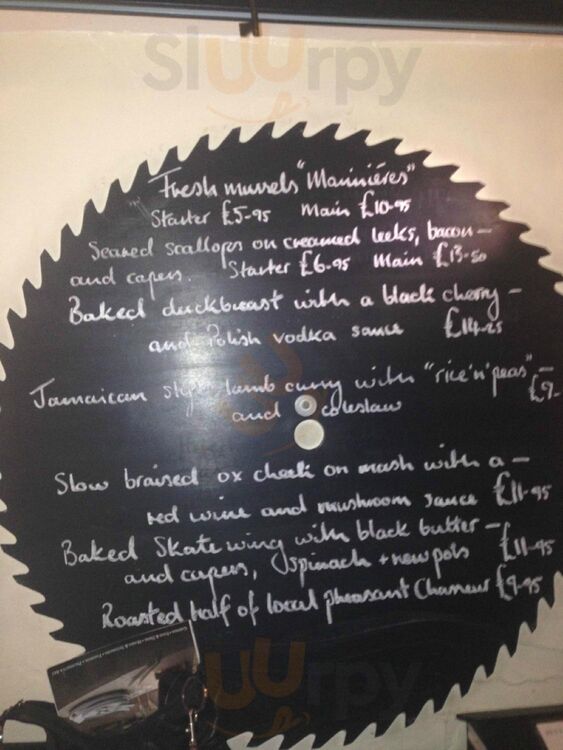 Sluurpy
Fresh mussels "Marinières"
Starter £5-95 Main £10-95
Seared scallops on creamed leeks, bacon -
and capers. Starter £6-95 Main £13-50
Baked duckbreast with a black cherry -
and Polish vodka sauce £14-25
Jamaican style lamb curry with "rice 'n' peas" -
and coleslaw £9-
Slow braised ox cheek on mash with a -
red wine and mushroom sauce £11-95
Baked Skate wing with black butter -
and capers, spinach + new pots £11-95
Roasted half of local pheasant Chasseur £9-95
Sluurpy